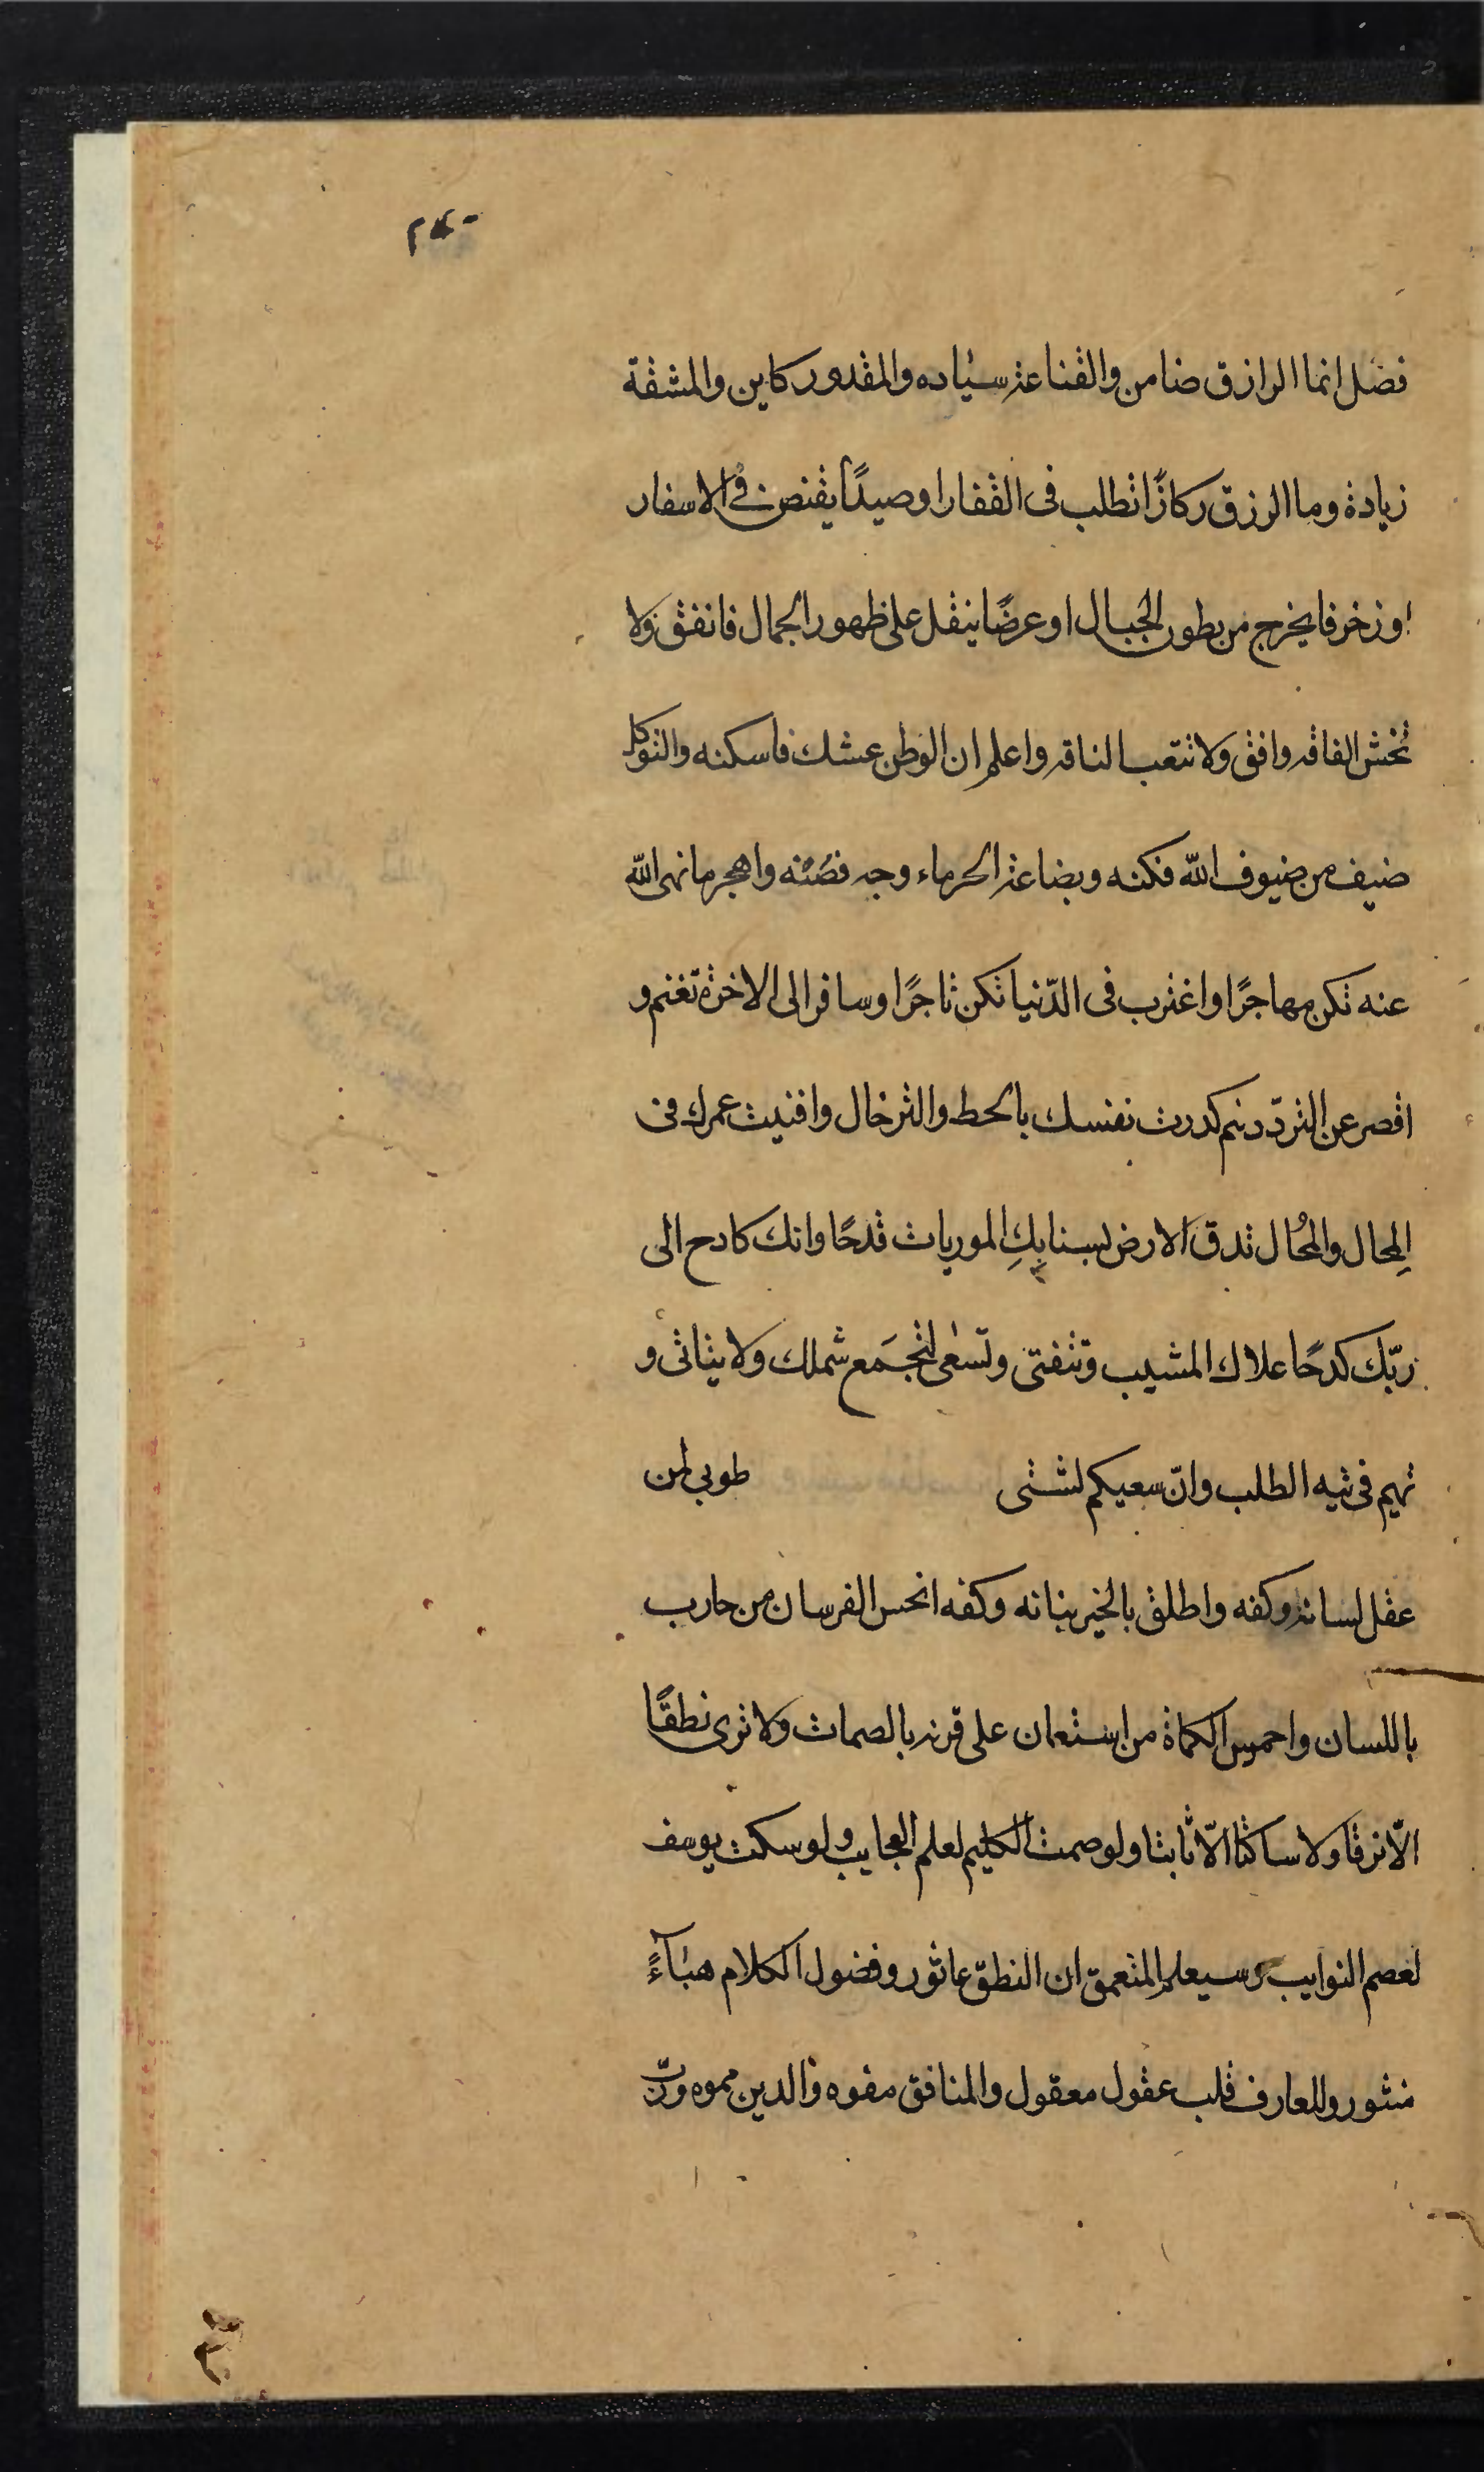 فضل انما الرازق ضامن والقناعة سياده والمقدور كاين والمشقة
زيادة وما الرزق ركازًا تطلب فى القفار او صيدًا يقنص فى الاسفار
او زخرفا يخرج من بطون الجبال او عرضًا ينقل على ظهور الجمال فانفق ولا
تخش الفاقه وافق ولا تتعب الناقه واعلم ان الوطن عشك فاسكنه والتوكل
ضيف من ضيوف الله فكنه وبضاعة الحر ماء وجه فصنه واهجر ما نهى الله
عنه تكن مهاجرًا واغترب فى الدّنيا تكن تاجرًا وسافر الى الاخرة تغنم و
اقصر عن التردّد كدرت نفسك بالحط والترحال وافنيت عمرك فى
المِحال والمُحال تدق الارض بسنابكِ الموريات قدحًا وانك كادح الى
ربّك كدحًا علاك المشيب وتتفتى وتسعى لتجمَع شملك ولا يتاتى و
تهيم فى تيه الطلب وانّ سعيكم لشتى طوبى لمن
عقل لسانه وكفه واطلق بالخير بنانه وكفه الفرسان من حارب
باللسان واحمس الكماة من استعان على قرنه بالصمات ولا ترى نطقًا
الّا نزقا ولا ساكتا الّا ثابتا ولو صمت الكليم لعلم العجايب ولو سكت يوسف
لعصم النوايب وسيعلم المتعمق ان النطق عاثور وفضول الكلام هباءً
منثور وللعارف قلب عقول معقول والمنافق مفوه والدين مموه وربّ